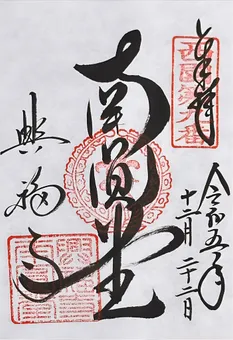 奉拝
西國第九番
令和五年
十二月二十二日
南円堂
興福寺